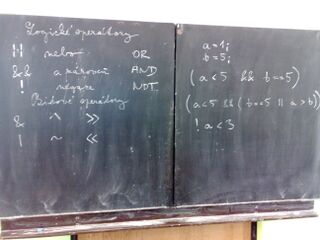 Logické operátory
|| nebo OR
&& a zároveň AND
! negace NOT
Bitové operátory
& ^ >>
| ~ <<
a=1;
b=5;
(a<5 && b==5)
(a<5 && (b==5 || a>b)
! a<3